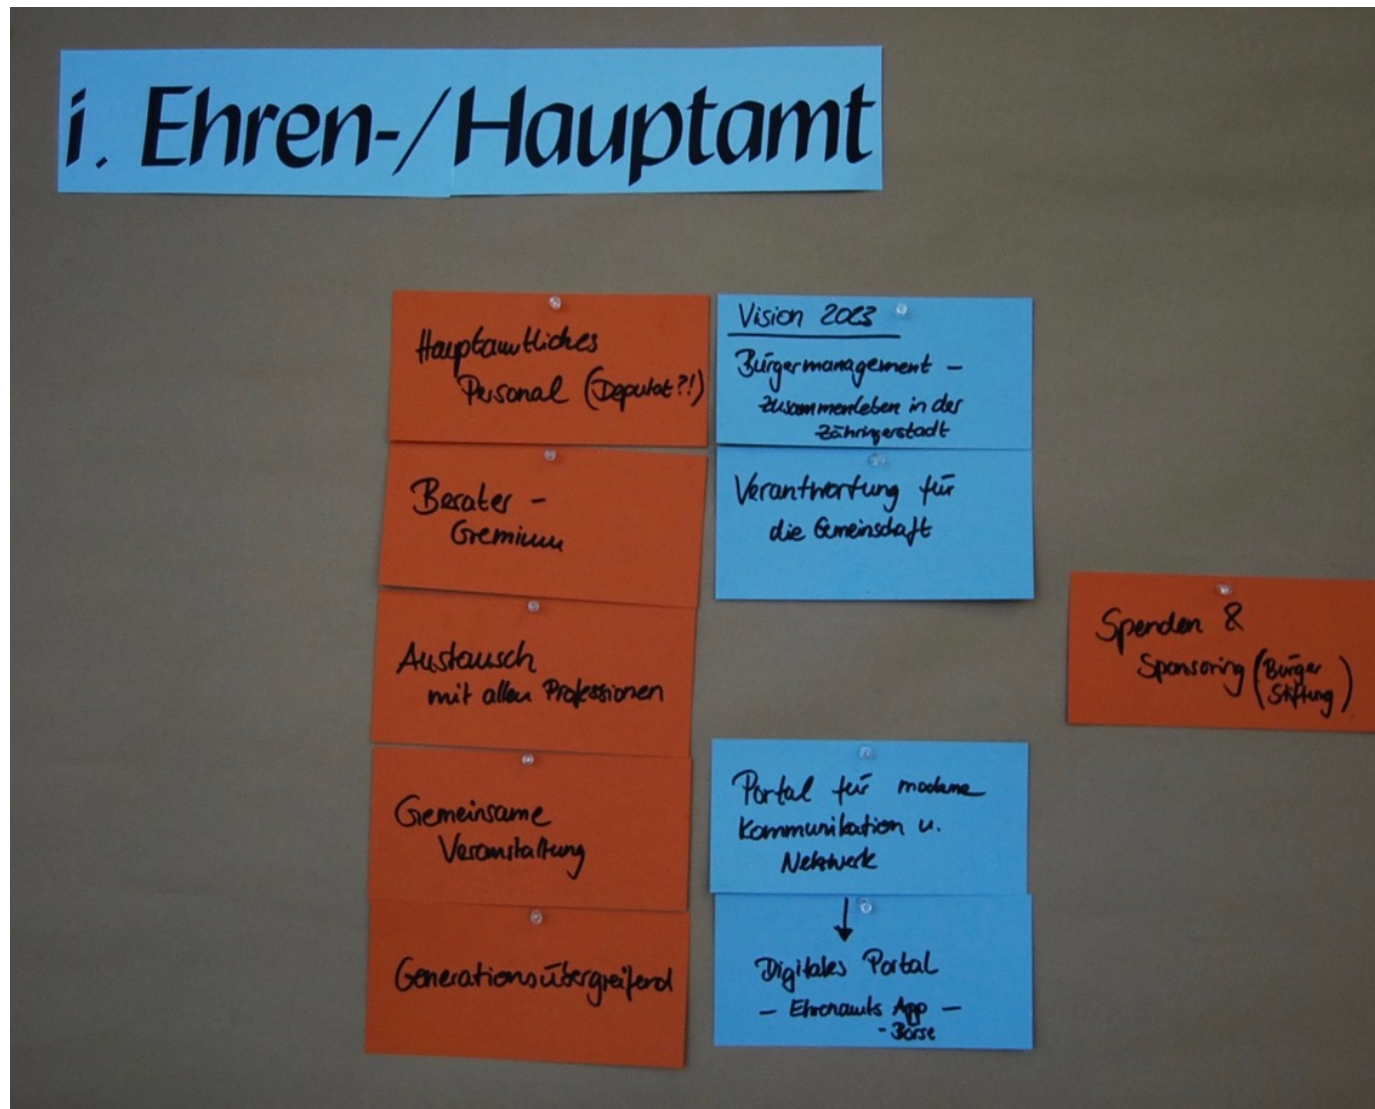 i. Ehren-/Hauptamt
Hauptamtliches
Personal (Deputat?!)
Berater -
Gremium
Austausch
mit allen Professionen
Gemeinsame
Veranstaltung
Generationsübergreifend
Vision 2023
Bürgermanagement –
Zusammenleben in der
Zähringerstadt
Verantwortung für
die Gemeinschaft
Portal für moderne
Kommunikation u.
Netzwerk
↓
Digitales Portal
– Ehrenamts App –
- Börse
Spenden &
Sponsoring (Bürger
Stiftung)